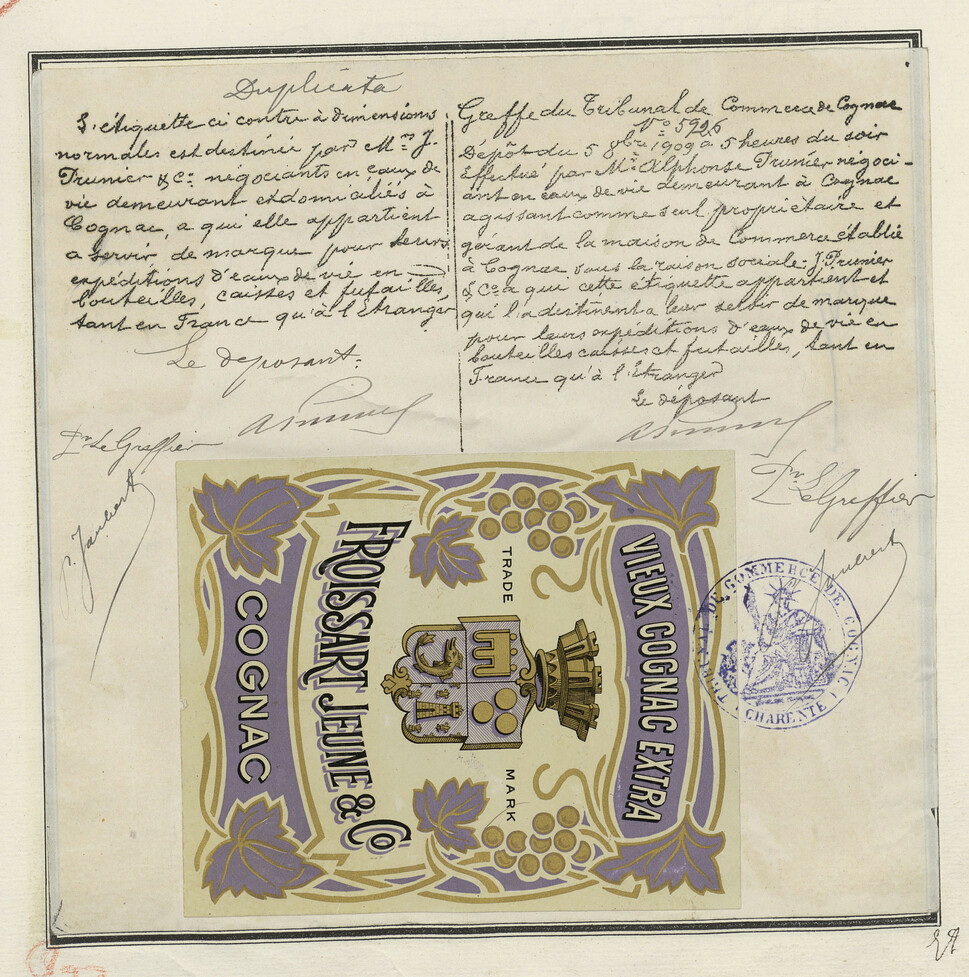 Duplicata
L'étiquette ci contre à dimensions
normales est destinée par Mrs J.
Prunier & Co négociants en eaux de
vie demeurant et domiciliés à
Cognac, a qui elle appartient
a servir de marque pour leurs
expéditions d'eaux de vie en
bouteilles, caisses et futailles,
tant en France qu'à l'Etranger
Le déposant:
A Prunier
Pr Le Greffier
P. Jaubert
Greffe du Tribunal de Commerce de Cognac
No 5926
Dépôt du 5 9bre 1909 à 5 heures du soir
Effectué par Mr Alphonse Prunier négoci-
ant en eaux de vie demeurant à Cognac
agissant comme seul propriétaire et
gérant de la maison de Commerce établie
à Cognac sous la raison sociale: J. Prunier
& Co a qui cette étiquette appartient et
qui l'a destinent a leur servir de marque
pour leurs expéditions d'eaux de vie en
bouteilles caisses et futailles, tant en
France qu'à l'Etranger
Le déposant
A Prunier
Pr Le Greffier
Jaubert
TRIBUNAL DE COMMERCE DE COGNAC
CHARENTE
VIEUX COGNAC EXTRA
TRADE MARK
FROISSART JEUNE & Co
COGNAC